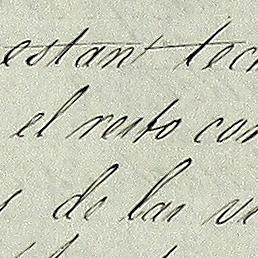 estant tec
el resto con
de las ve